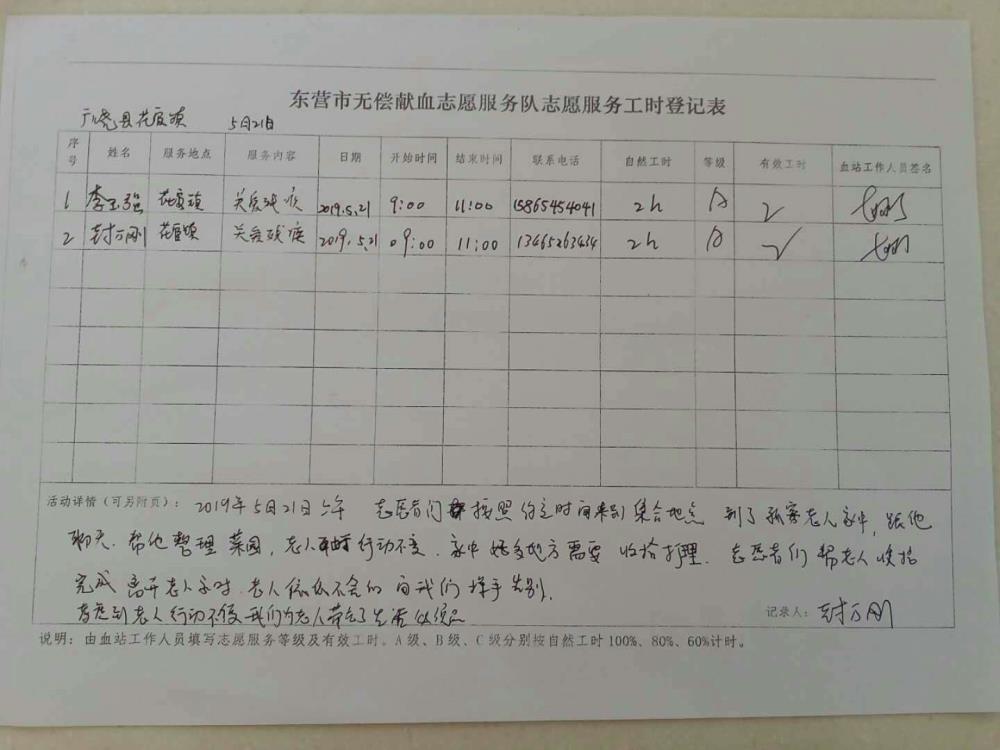 东营市无偿献血志愿服务队志愿服务工时登记表
广饶县花官镇 5月21日
序号 姓名 服务地点 服务内容 日期 开始时间 结束时间 联系电话 自然工时 等级 有效工时 血站工作人员签名
1 李玉强 花官镇 关爱残疾 2019.5.21 9:00 11:00 15865454041 2h A 2
2 封万刚 花官镇 关爱残疾 2019.5.21 09:00 11:00 13465263434 2h A
活动详情（可另附页）： 2019年5月21日上午 志愿者们按照约定时间来到集合地点 到了孤寡老人家中,跟他
聊天.帮他整理菜园,老人行动不变.家中好多地方需要收拾打理.志愿者们帮老人收拾
完成 离开老人家时.老人依依不舍的向我们挥手告别.
考虑到老人行动不便我们为老人带去了生活必须品
记录人：封万刚
说明：由血站工作人员填写志愿服务等级及有效工时。A级、B级、C级分别按自然工时100%、80%、60%计时。